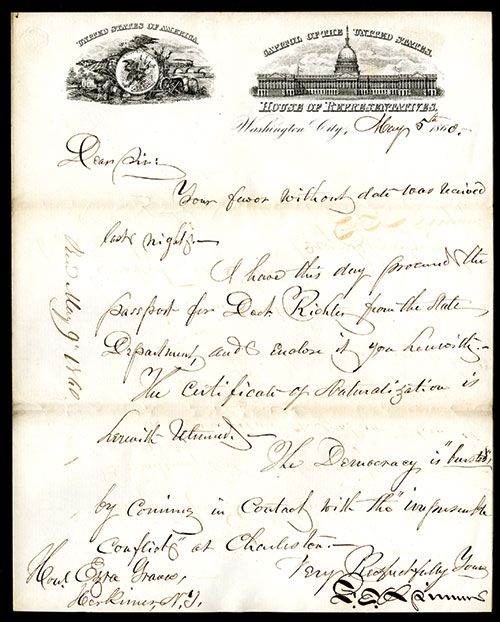 UNITED STATES OF AMERICA.
CAPITOL OF THE UNITED STATES.
HOUSE OF REPRESENTATIVES.
Washington City, May 5th 1860.
Dear Sir:
Your favor without date was received
last night.
I have this day procured the
passport for Doct. Richter from the State
Department, and enclose it you herewith.
The Certificate of Naturalization is
herewith returned.
The Democracy is "bursted",
by coming in contact with the "irrepressible
conflict" at Charleston.
Very Respectfully Yours
Hon. Ezra Graves,
Herkimer, N.Y.
Recd May 9th 1860.